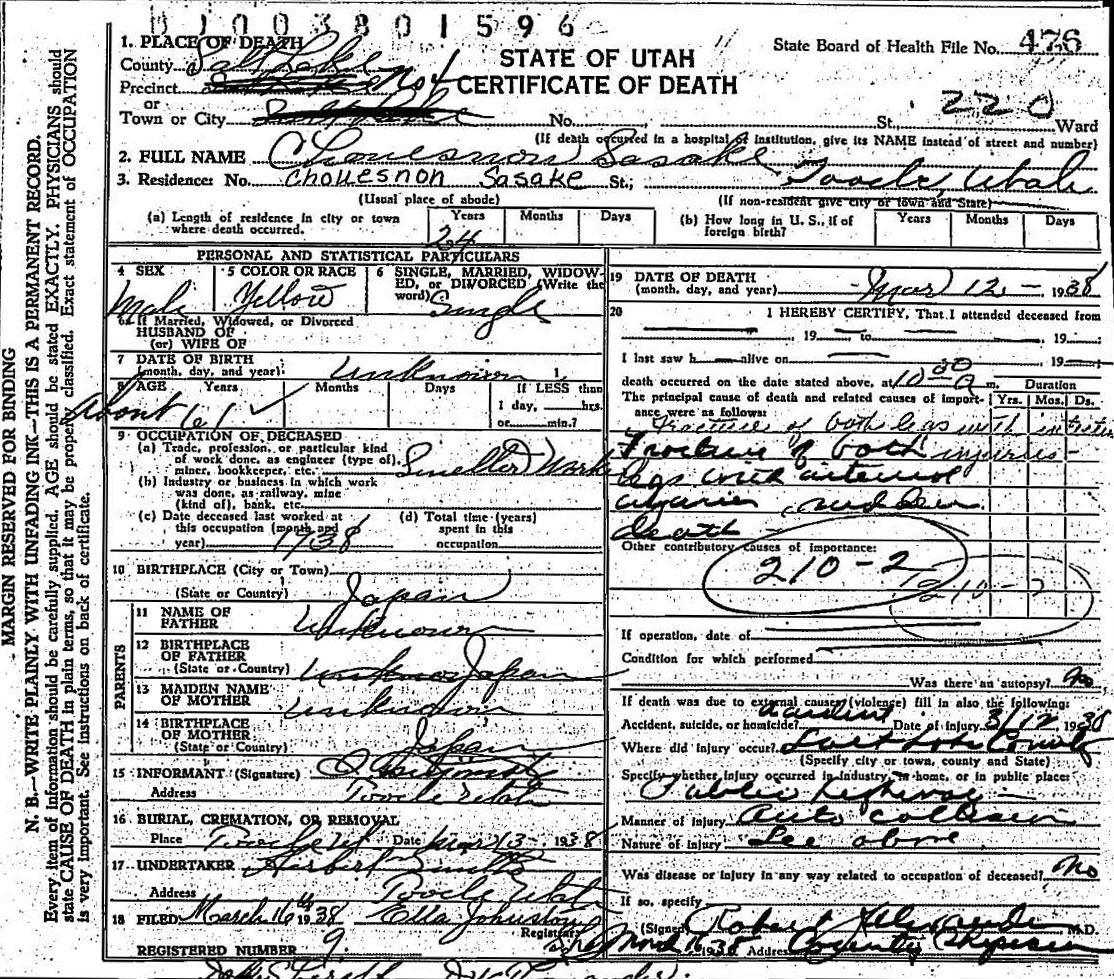 MARGIN RESERVED FOR BINDING
N. B.—WRITE PLAINLY WITH UNFADING INK—THIS IS A PERMANENT RECORD.
Every item of information should be carefully supplied. AGE should be stated EXACTLY. PHYSICIANS should
state CAUSE OF DEATH in plain terms, so that it may be properly classified. Exact statement of OCCUPATION
is very important. See instructions on back of certificate.
1003801596
1. PLACE OF DEATH
County Salt Lake
Precinct No 4
or
Town or City
STATE OF UTAH
CERTIFICATE OF DEATH
State Board of Health File No. 476
220
No. St., Ward
(If death occurred in a hospital or institution, give its NAME instead of street and number)
2. FULL NAME Chouesnon Sasake
3. Residence: No. Chouesnon Sasake St.; Tooele, Utah
(Usual place of abode) (If non-resident give city or town and State)
(a) Length of residence in city or town
where death occurred. Years 24 Months Days
(b) How long in U. S., if of
foreign birth? Years Months Days
PERSONAL AND STATISTICAL PARTICULARS
4 SEX Male
5 COLOR OR RACE Yellow
6 SINGLE, MARRIED, WIDOWED, or DIVORCED (Write the
word) Single
6a If Married, Widowed, or Divorced
HUSBAND OF
(or) WIFE OF
7 DATE OF BIRTH
(month, day, and year) Unknown 1
8 AGE Years Months Days If LESS than
About 61 ✓ 1 day, hrs.
or min.?
9 OCCUPATION OF DECEASED
(a) Trade, profession, or particular kind
of work done, as engineer (type of),
miner, bookkeeper, etc. Smelter Work
(b) Industry or business in which work
was done, as railway, mine
(kind of), bank, etc.
(c) Date deceased last worked at
this occupation (month and
year) 1938
(d) Total time (years)
spent in this
occupation
10 BIRTHPLACE (City or Town)
(State or Country) Japan
PARENTS
11 NAME OF
FATHER Unknown
12 BIRTHPLACE
OF FATHER
(State or Country) Japan
13 MAIDEN NAME
OF MOTHER Unknown
14 BIRTHPLACE
OF MOTHER
(State or Country) Japan
15 INFORMANT (Signature)
Address Tooele Utah
16 BURIAL, CREMATION, OR REMOVAL
Place Tooele Ut Date Mar 13 1938
17 UNDERTAKER Herbert
Address Tooele Utah
18 FILED March 16th 1938 Ella Johnston
Registrar
REGISTERED NUMBER 9.
19 DATE OF DEATH
(month, day, and year) Mar 12 - 1938
20 I HEREBY CERTIFY, That I attended deceased from
19 to 19
I last saw h alive on 19
death occurred on the date stated above, at 10 30 a m. Duration
The principal cause of death and related causes of importance were as follows: Yrs. Mos. Ds.
Fracture of both legs with
injuries-
Fracture of both
legs with internal
injuries sudden
death
Other contributory causes of importance:
210-2
210-2
If operation, date of
Condition for which performed
Was there an autopsy? No
If death was due to external causes (violence) fill in also the following:
Accident, suicide, or homicide? Accident Date of injury 3/12 1938
Where did injury occur? Salt Lake County
(Specify city or town, county and State)
Specify whether injury occurred in industry, in home, or in public place:
Public highway
Manner of injury Auto collision
Nature of injury See above
Was disease or injury in any way related to occupation of deceased? No
If so, specify
(Signed) Robert M.D.
March 16 1938 Address County Physician